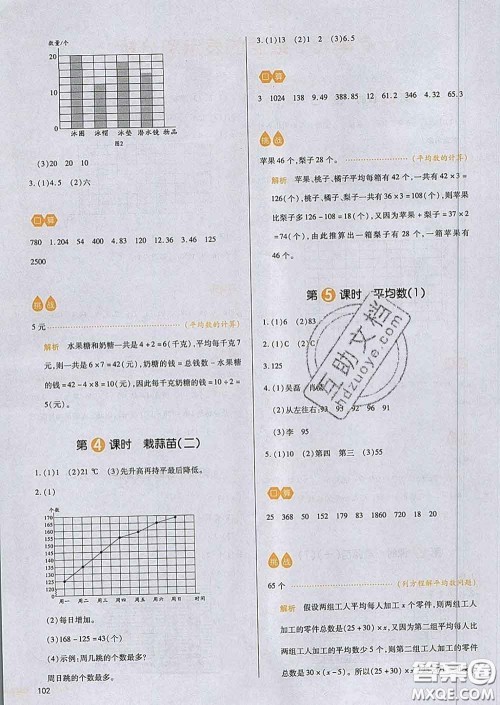 数量/个
20
15
10
5
0
泳圈 泳帽 泳垫 潜水镜 物品
图2
(3)20 20 10
3.(1)4.5 (2)六
口算
780 1.204 54 400 4.36 3.3 45 125
2500
挑战
5元 (平均数的计算)
解析 水果糖和奶糖一共是4+2=6(千克),平均每千克7
元,则一共是6×7=42(元),奶糖的钱=总钱数-水果糖
的钱=42-32=10(元),因此每千克奶糖的钱=10÷2=
5(元)。
第4课时 栽蒜苗(二)
1.(1)1 (2)21℃ (3)先升高再持平最后降低。
2.(1)
个数
170
165
160
155
150
145
140
135
130
125
120
0
周一 周二 周三 周四 周五 周六 周日 时间
(2)每日增加。
(3)168-125=43(个)
(4)示例:周几跳的个数最多?
周日跳的个数最多。
102
3.(1)13 (2)1 2 (3)6.5
口算
3 1024 138 9.49 388.85 12 61.2 346 4.32 65.3
挑战
苹果46个,梨子28个。 (平均数的计算)
解析 苹果、桃子、橘子平均每箱有42个,一共有42×3=
126(个),桃子、橘子、梨子一共有36×3=108(个),则苹果
比梨子多126-108=18(个),又因为苹果+梨子=37×2
=74(个),由此推算出一箱苹果有46个,一箱梨子有28
个。
第5课时 平均数(1)
1.(1)15 (2)83
2.(1)C (2)C
3.125
4.(1)吴磊
(2)从左往右:93 92 96 91
(3)李 95
5.(1)10 (2)第四 第三 (3)55
口算
25 368 50 152 179 183 1860 720 18 20
挑战
65个 (列方程解平均数问题)
解析 假设两组工人平均每人加工x个零件,则两组工人
加工的零件总数是(25+30)×x,因为第一组工人平均比
两组工人加工的零件总数(25+30)×x,又因第二组平均每人比
总数是30×(x-5)。所以(25+30)×x
互助文档
hdzuoye.com
答案圈
MXQE.COM